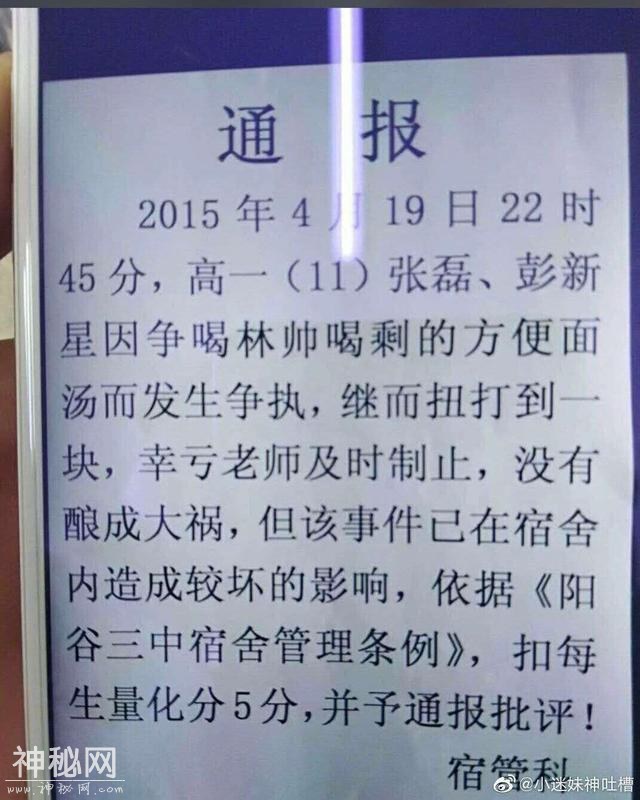 通 报
2015 年 4 月 19 日 22 时
45 分，高一（11）张磊、彭新
星因争喝林帅喝剩的方便面
汤而发生争执，继而扭打到一
块，幸亏老师及时制止，没有
酿成大祸，但该事件已在宿舍
内造成较坏的影响，依据《阳
谷三中宿舍管理条例》，扣每
生量化分 5 分，并予通报批评！
宿管科
神秘网
www.shenmi.com.cn
@小迷妹神吐槽